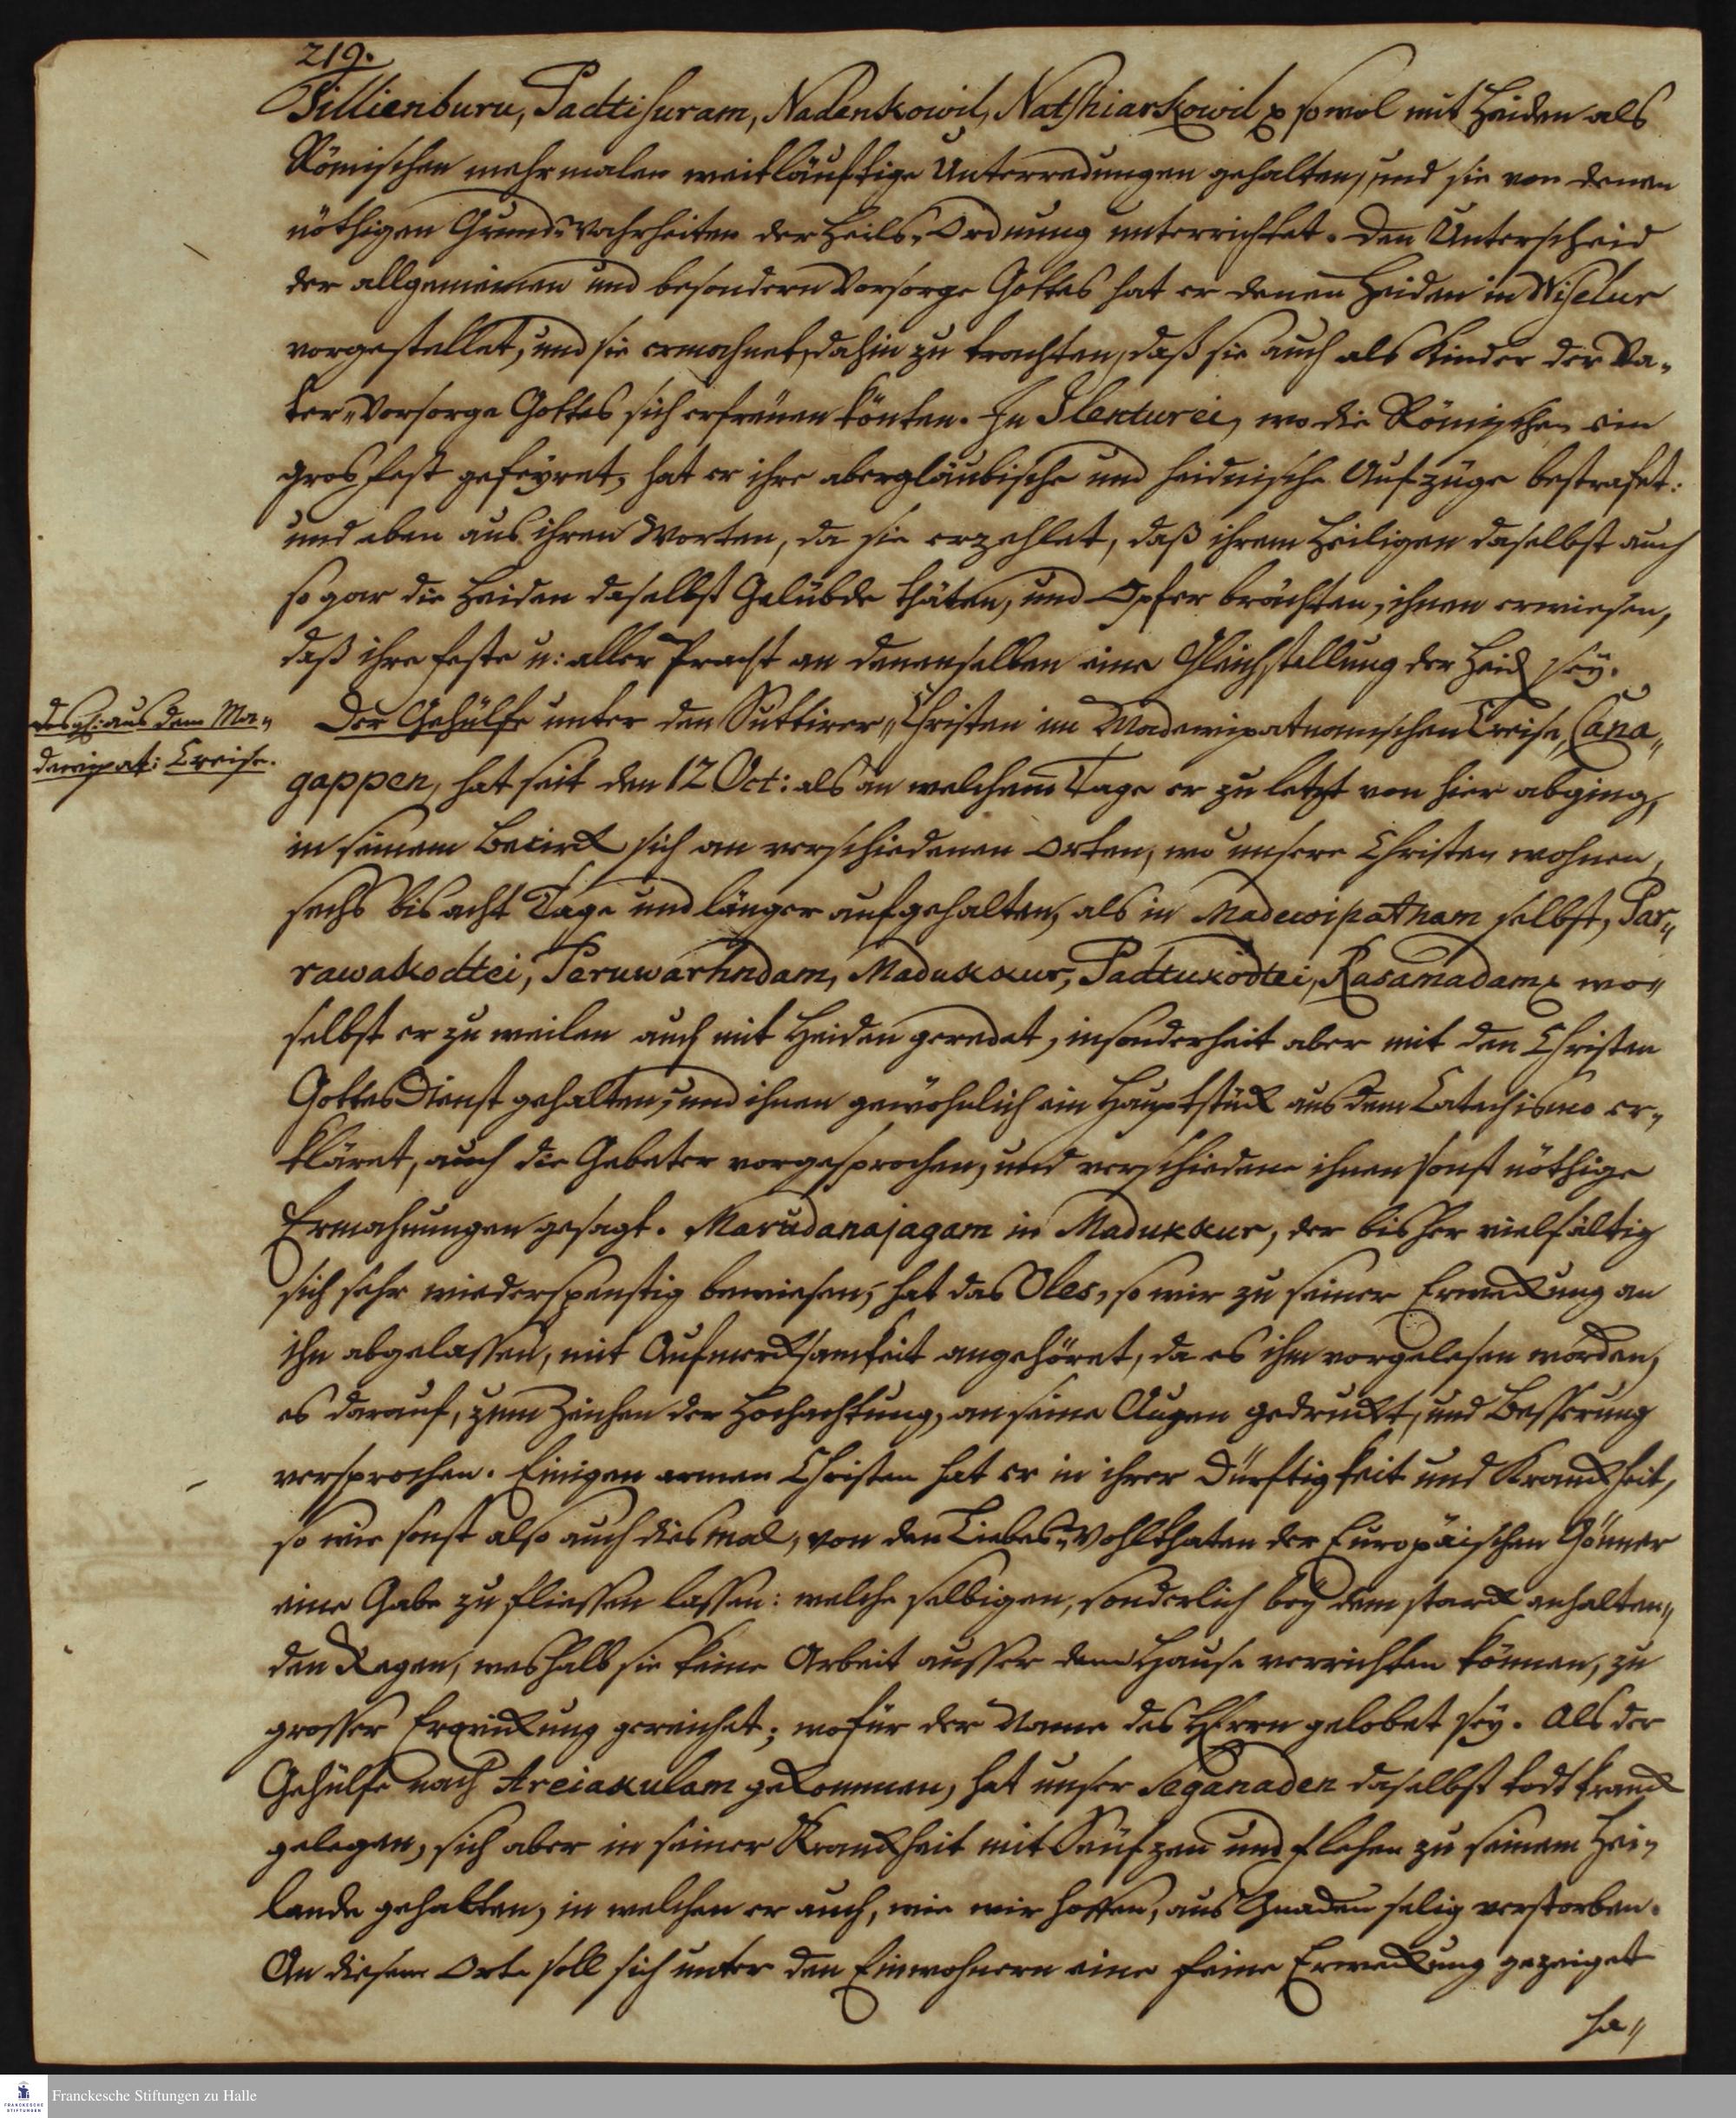 219.
Tillienburu, Padtisuram, Nadenkowil, Natshiarkowil p sowol mit Heiden als
Römischen mehrmalen weitläuftige Unterredungen gehalten, und sie von denen
nöthigen Grund-Wahrheiten der Heils-Ordnung unterrichtet. Den Unterscheid
der allgemeinen und besondern Vorsorge Gottes hat er denen Heiden in Wiselur
vorgestellet, und sie ermahnet, dahin zu trachten, daß sie auch als Kinder der Va-
ter-Vorsorge Gottes sich erfreuen könten. In Ilenturei, wo die Römischen ein
gros Fest gefeyret, hat er ihre abergläubische und heidnische Aufzüge bestrafet:
und eben aus ihren Worten, da sie erzehlet, daß ihrem Heiligen daselbst auch
so gar die Heiden daselbst Gelübde thäten, und Opfer brächten, ihnen erwiesen,
daß ihre Feste u: aller Pracht an denenselben eine Gleichstellung der Heid sey.
desgl: aus dem Ma-
dewipat: Creise.
Der Gehülfe unter den Suttirer-Christen im Madewipatnamschen Creise, Cana-
gappen, hat seit den 12 Oct: als an welchem Tage er zu letzt von hier abging,
in seinem Bezirck sich an verschiedenen Orten, wo unsere Christen wohnen,
sechs bis acht Tage und länger aufgehalten, als in Madewipatnam selbst, Par-
rawakodtei, Peruwarhndam, Madukkur, Padtukodtei, Rasamadam p wo-
selbst er zu weilen auch mit Heiden geredet, insonderheit aber mit den Christen
GottesDienst gehalten, und ihnen gewöhnlich ein Hauptstück aus dem Catechismo er-
kläret, auch die Gebeter vorgesprochen, und verschiedene ihnen sonst nöthige
Ermahnungen gesagt. Marudanajagam in Madukkur, der bisher vielfältig
sich sehr wiederspenstig bewiesen, hat das Oles, so wir zu seiner Erweckung an
ihn abgelassen, mit Aufmercksamkeit angehöret, da es ihm vorgelesen worden,
es darauf, zum Zeichen der Hochachtung, an seine Augen gedruckt, und Besserung
versprochen. Einigen armen Christen hat er in ihrer Dürftigkeit und Kranckheit,
so wie sonst also auch dies mal, von den Liebes-Wohlthaten der Europäischen Gönner
eine Gabe zu fliessen lassen: welche selbigen, sonderlich bey dem starck anhalten-
den Regen, weshalb sie keine Arbeit ausser dem Hause verrichten können, zu
grosser Erquickung gereichet; wofür der Name des HErrn gelobet sey. Als der
Gehülfe nach Areiakulam gekommen, hat unser Seganaden daselbst todt kranck
gelegen, sich aber in seiner Kranckheit mit Seufzen und Flehen zu seinem Hei-
lande gehalten, in welchen er auch, wie wir hoffen, aus Gnaden selig verstorben.
An diesem Orte soll sich unter den Einwohnern eine feine Erweckung gezeiget
ha-
Franckesche Stiftungen zu Halle